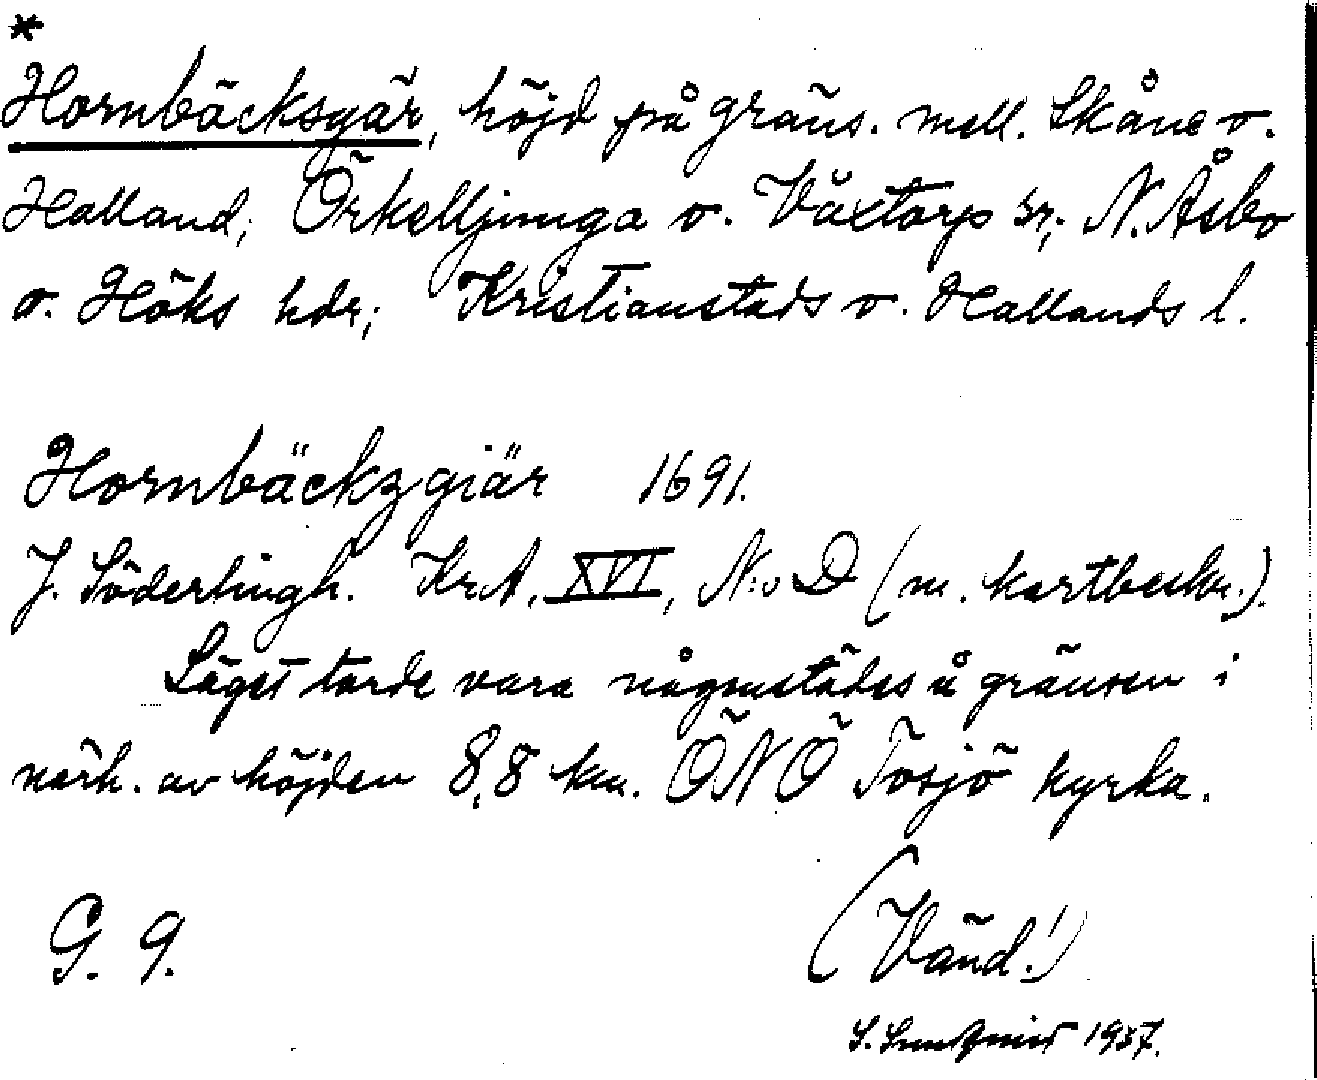 *
Hornbäcksgär, höjd på gräns. mell. Skåne o.
Halland; Örkelljunga o. Våxtorp sr; N. Åsbo
o. Höks hdr; Kristianstads o. Hallands l.
Hornbäckzgiär 1691.
J. Söderlingh. Kr.A. XVI, N:o D (m. kartbeskr.).
Läget torde vara någonstädes å gränsen i
närh. av höjden 8,8 km. ÖNÖ Tosjö kyrka.
G. 9.
(Vänd!)
S. 1937.